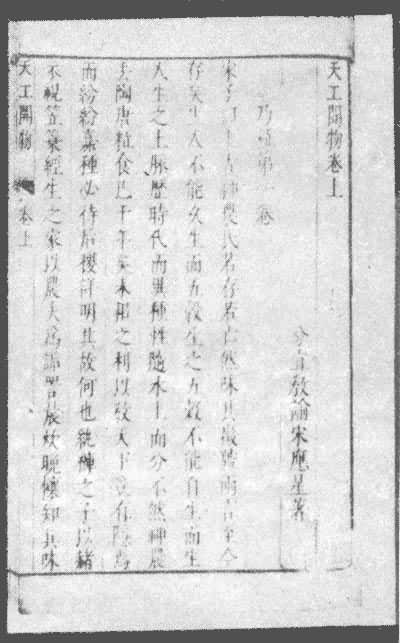 天工開物卷上
分宜教諭宋應星著
乃粒第一卷
宋子曰上古神農氏若存若亡然味其徽號兩言至今
存矣生人不能久生而五穀生之五穀不能自生而生
人生之土脉歷時代而異種性隨水土而分不然神農
去陶唐粒食已千年矣耒耜之利以教天下豈有隱焉
而紛紛嘉種必待后稷詳明其故何也紈褲之子以赭
衣視笠蓑經生之家以農夫為詬詈晨炊晚饟知其味
天工開物 卷上